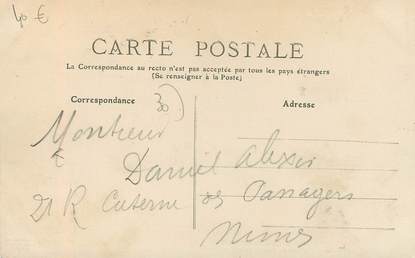 40 €
CARTE POSTALE
La Correspondance au recto n'est pas acceptée par tous les pays étrangers
(Se renseigner à la Poste)
Correspondance
Adresse
30
Monsieur
Daniel Alexis
21 R Caserne des Passagers
Nimes